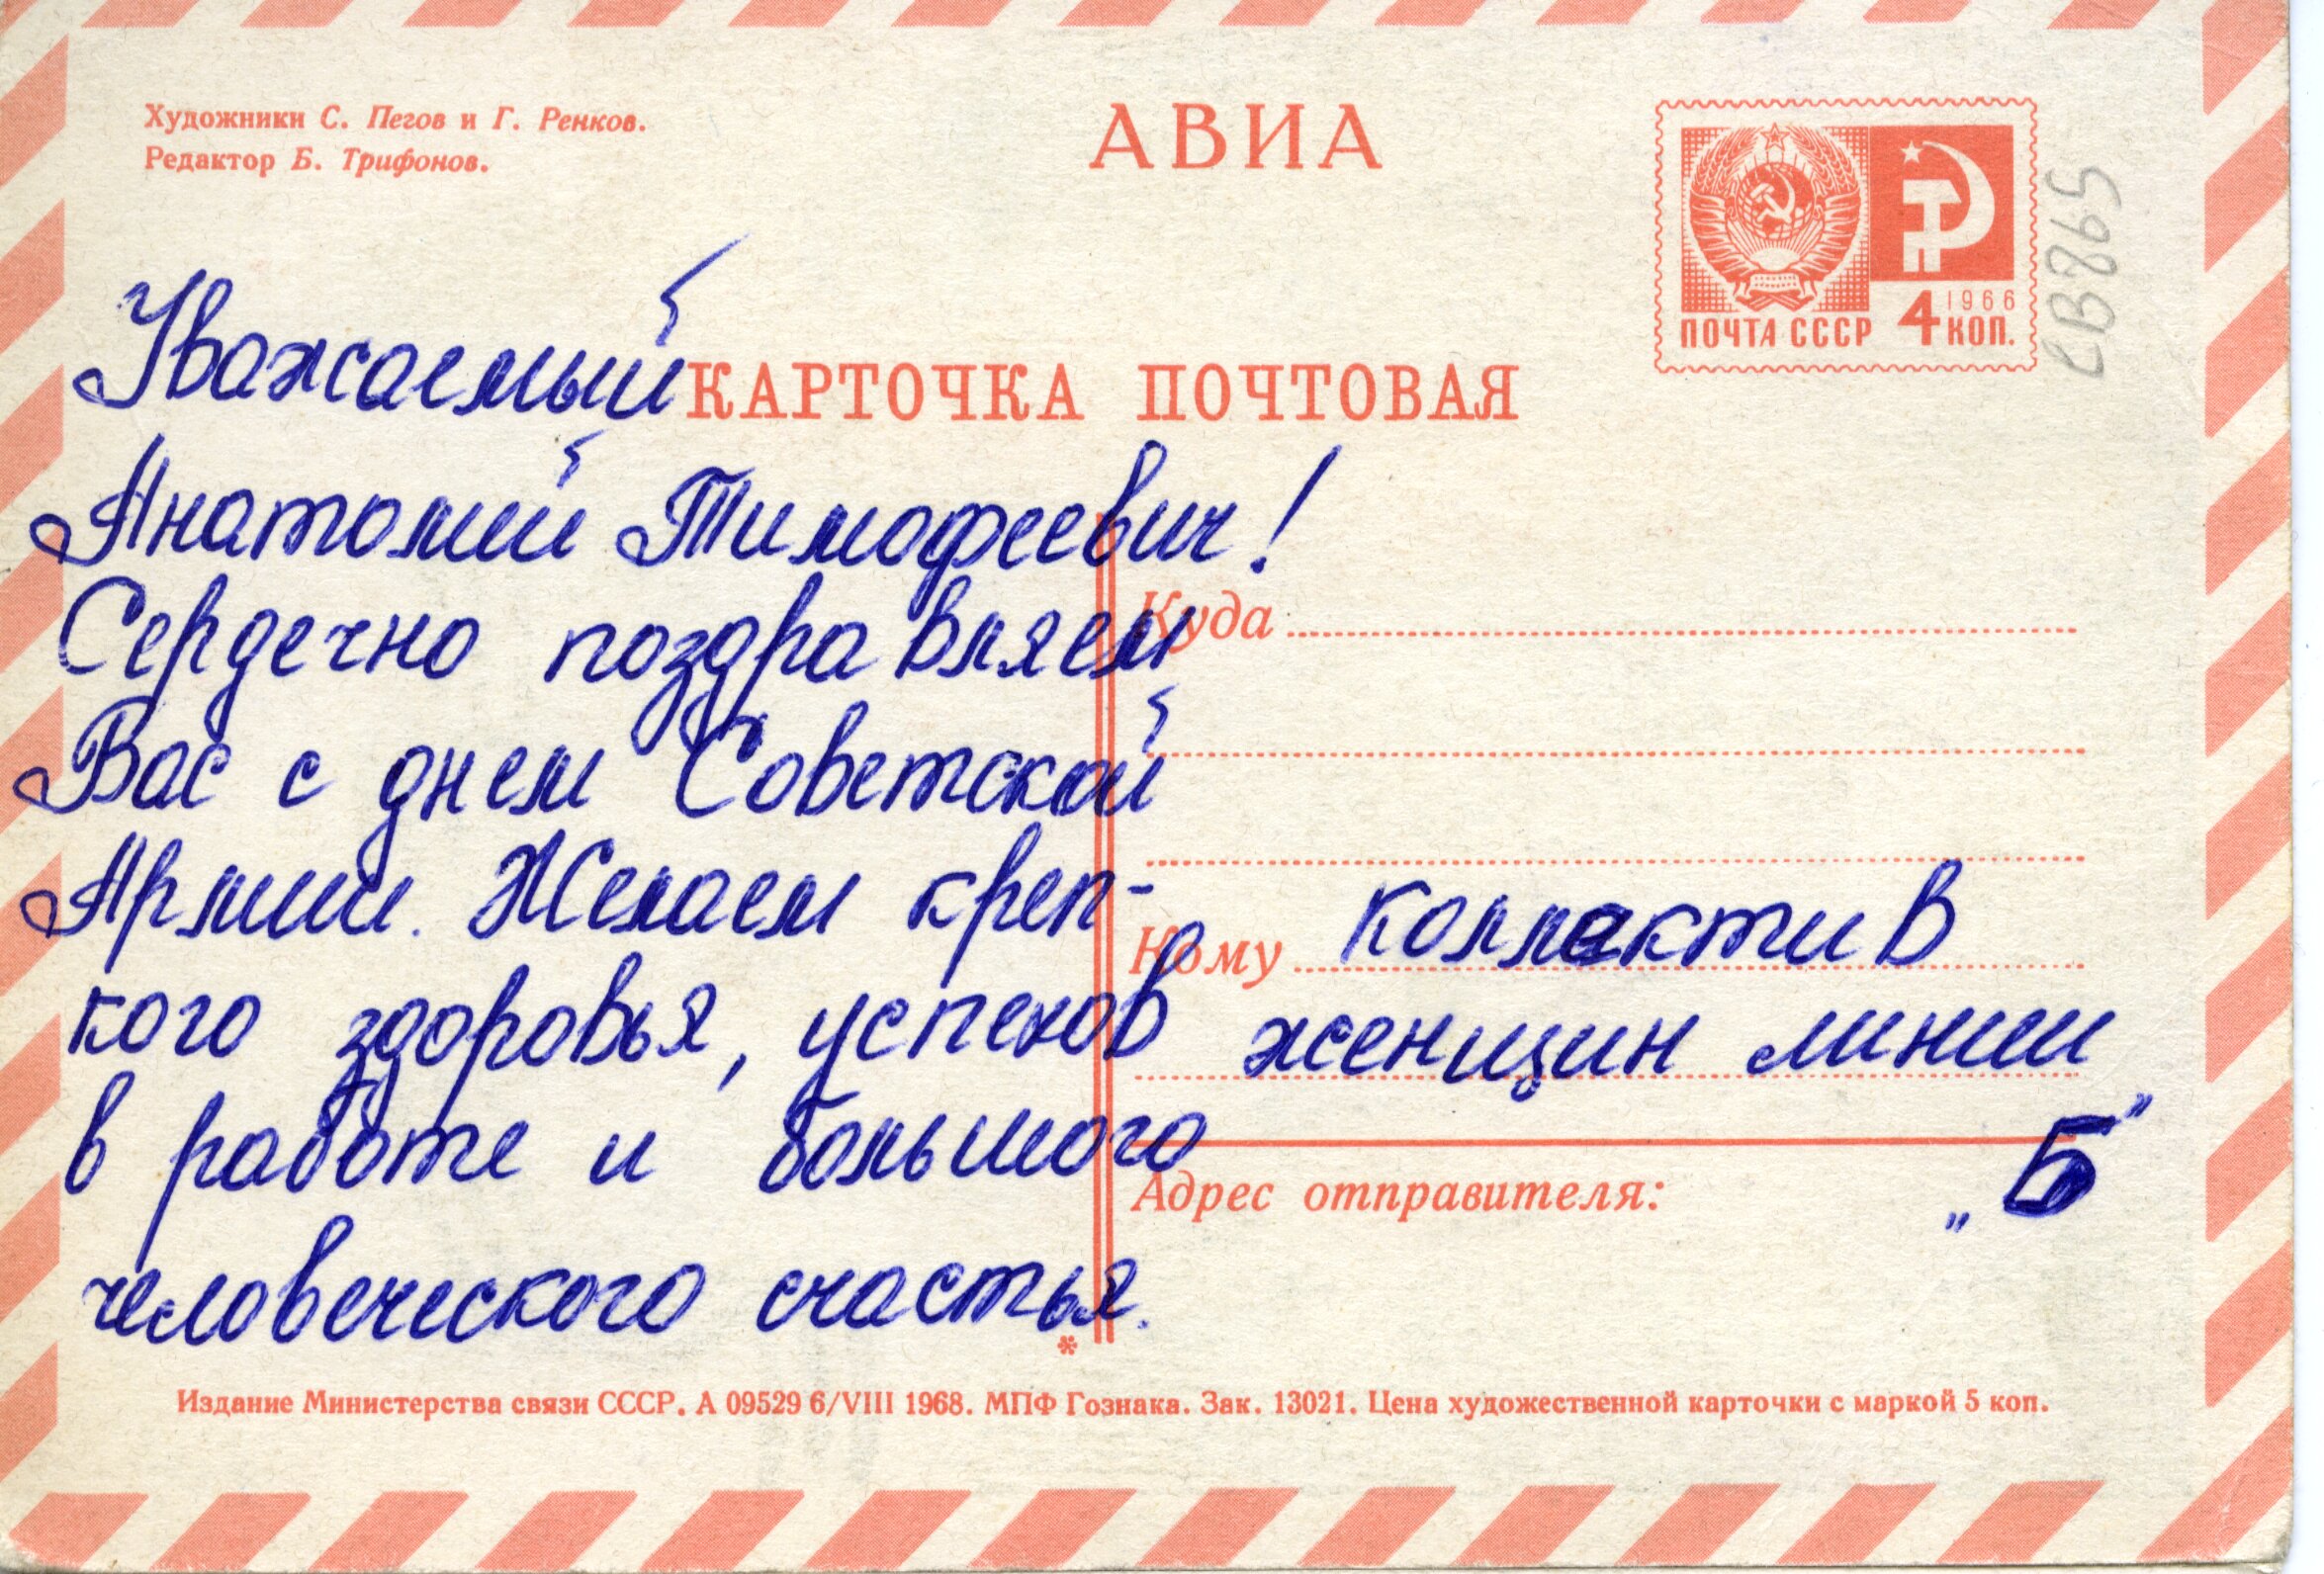 Художники С. Пегов и Г. Ренков.
Редактор Б. Трифонов.
АВИА
1966
ПОЧТА СССР 4 КОП.
КАРТОЧКА ПОЧТОВАЯ
Уважаемый
Анатолий Тимофеевич!
Сердечно поздравляем
Вас с днем Советской
Армии. Желаем креп-
кого здоровья, успехов
в работе и большого
человеческого счастья.
*
Куда
Кому коллектив
женщин линии
„Б”
Адрес отправителя:
Издание Министерства связи СССР. А 09529 6/VIII 1968. МПФ Гознака. Зак. 13021. Цена художественной карточки с маркой 5 коп.